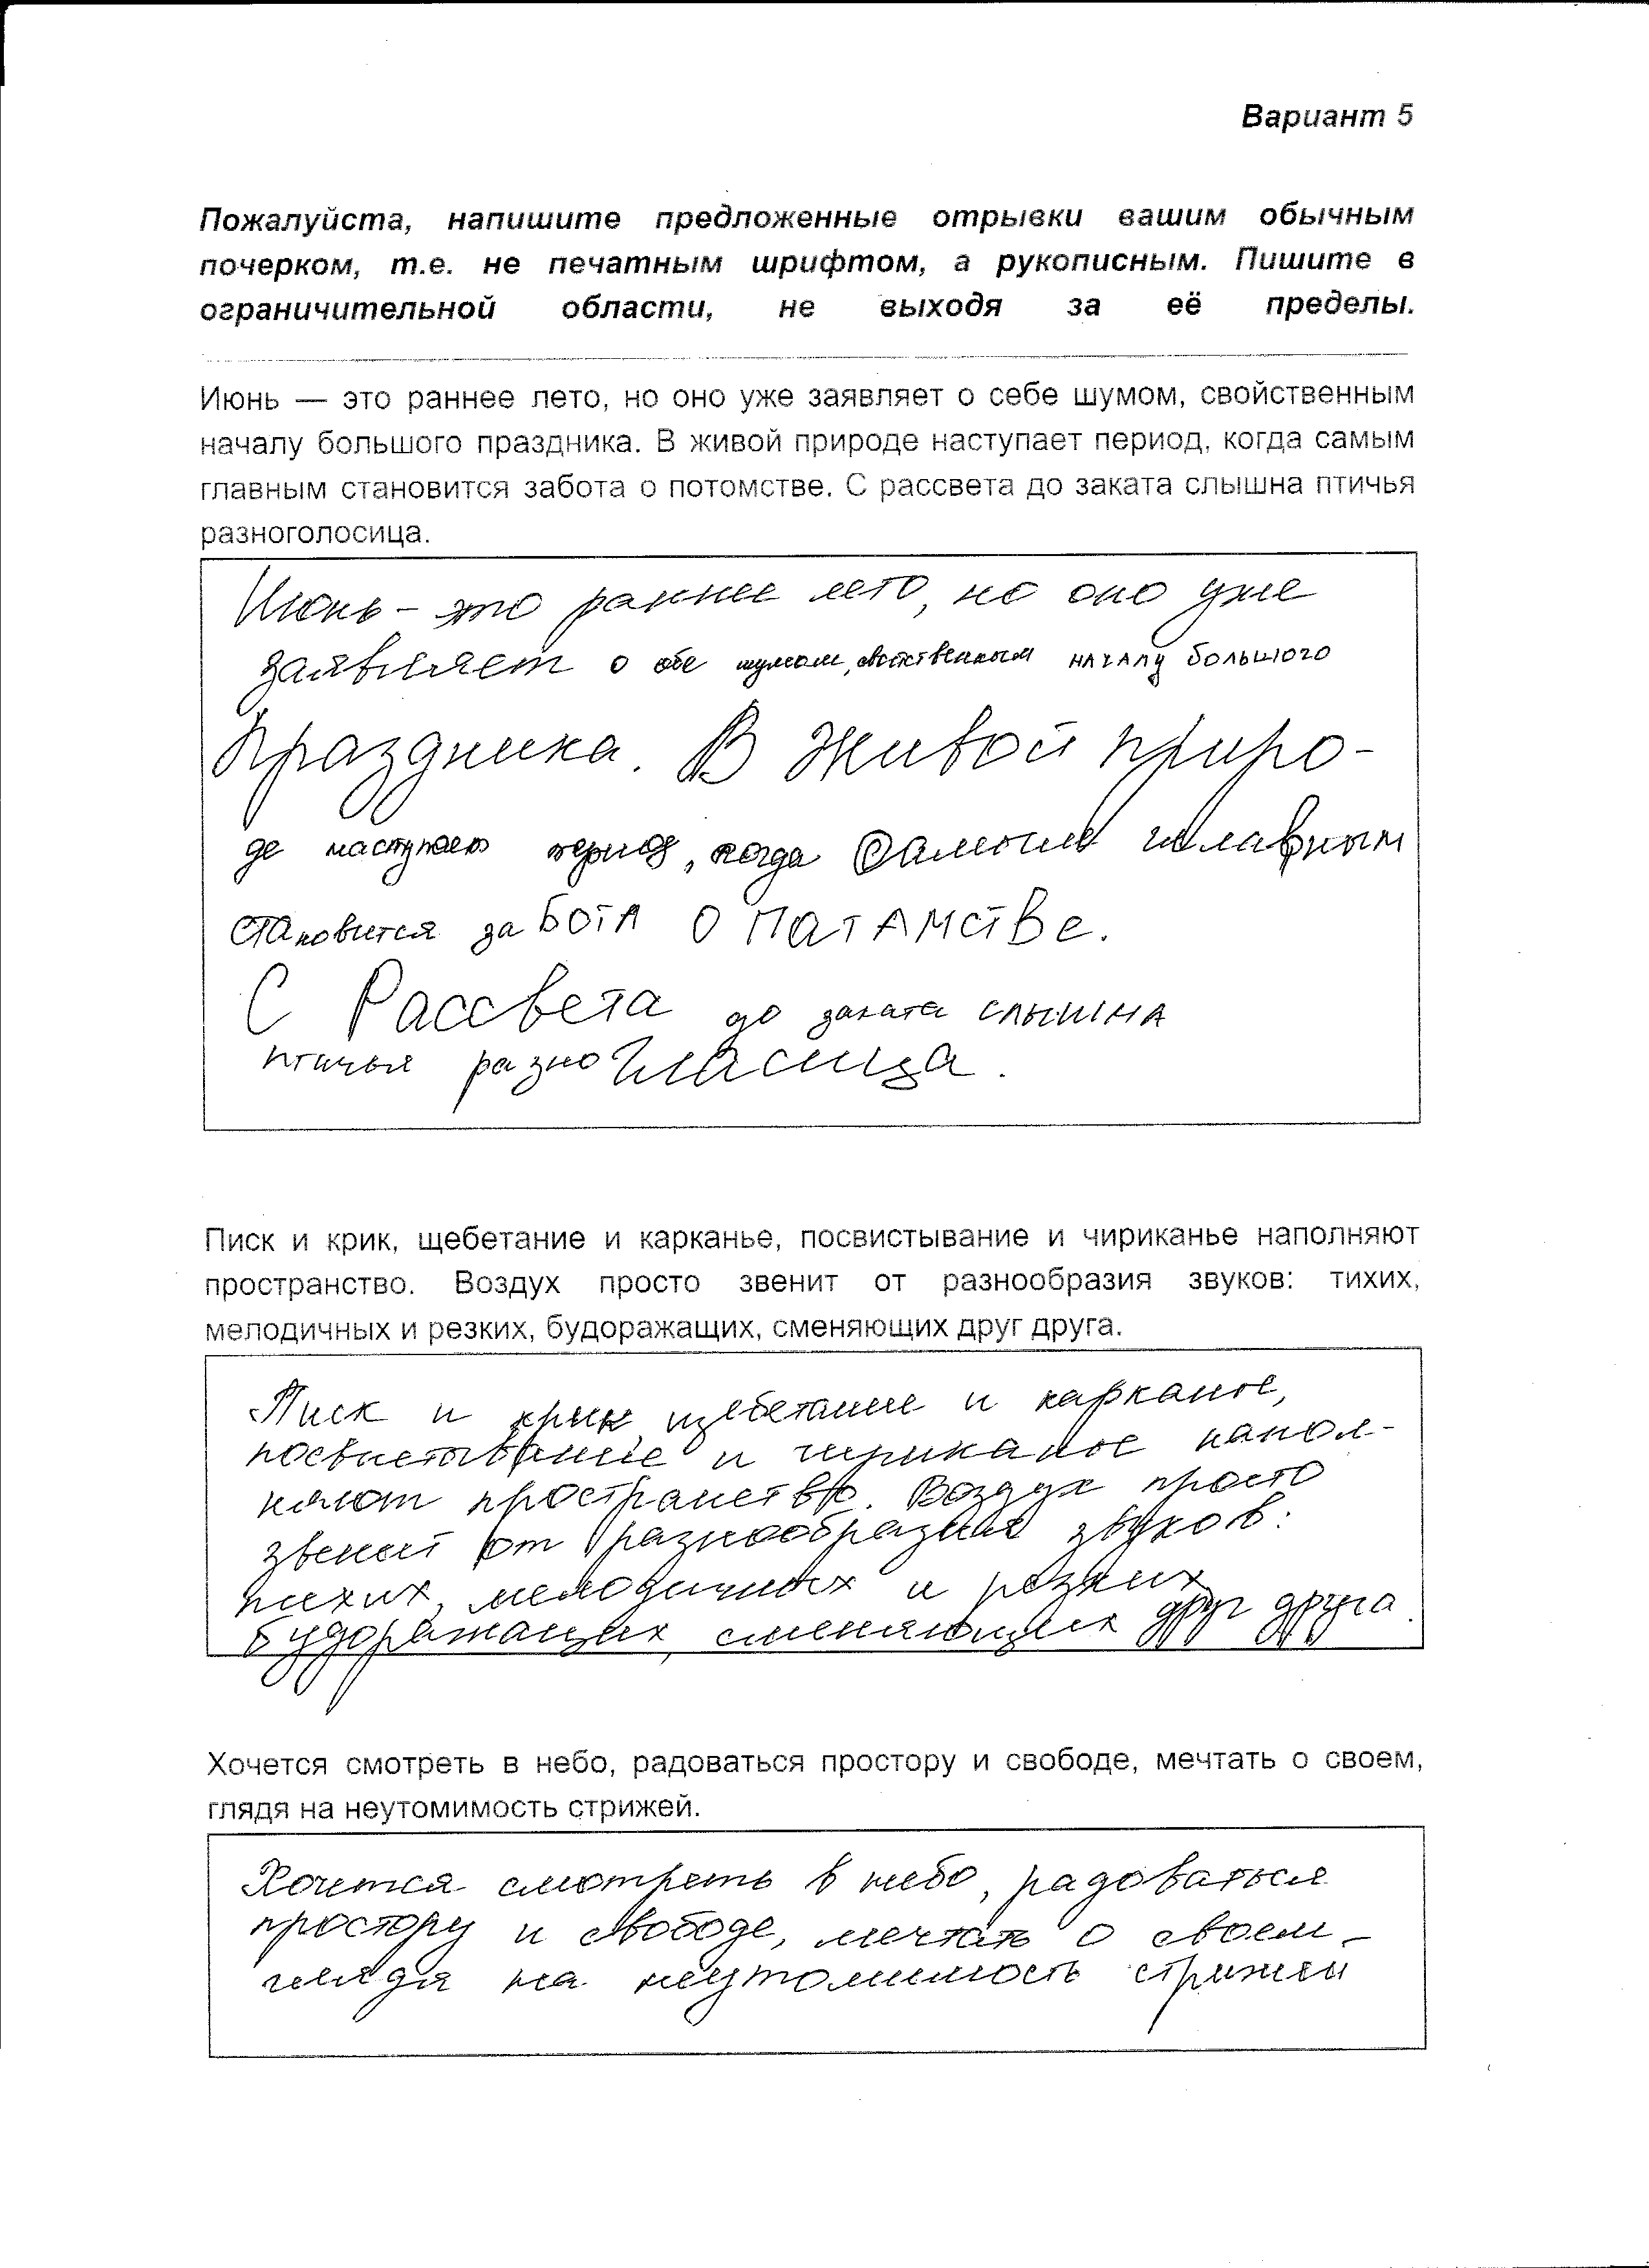 Вариант 5
Пожалуйста, напишите предложенные отрывки вашим обычным
почерком, т.е. не печатным шрифтом, а рукописным. Пишите в
ограничительной области, не выходя за её пределы.
Июнь — это раннее лето, но оно уже заявляет о себе шумом, свойственным
началу большого праздника. В живой природе наступает период, когда самым
главным становится забота о потомстве. С рассвета до заката слышна птичья
разноголосица.
Июнь – это раннее лето, но оно уже
заявляет о себе шумом, свойственным началу большого
праздника. В живой приро-
де наступает период, когда самым главным
становится забота о патамстве.
С Рассвета до заката слышна
птичья разногласица.
Писк и крик, щебетание и карканье, посвистывание и чириканье наполняют
пространство. Воздух просто звенит от разнообразия звуков: тихих,
мелодичных и резких, будоражащих, сменяющих друг друга.
Писк и крик, щебетание и карканье,
посвистывание и чириканье напол-
няют пространство. Воздух просто
звенит от разнообразия звуков:
тихих, мелодичных и резких
будоражащих, сменяющих друг друга.
Хочется смотреть в небо, радоваться простору и свободе, мечтать о своем,
глядя на неутомимость стрижей.
Хочется смотреть в небо, радоваться
простору и свободе, мечтать о своем –
глядя на неутомимость стрижей